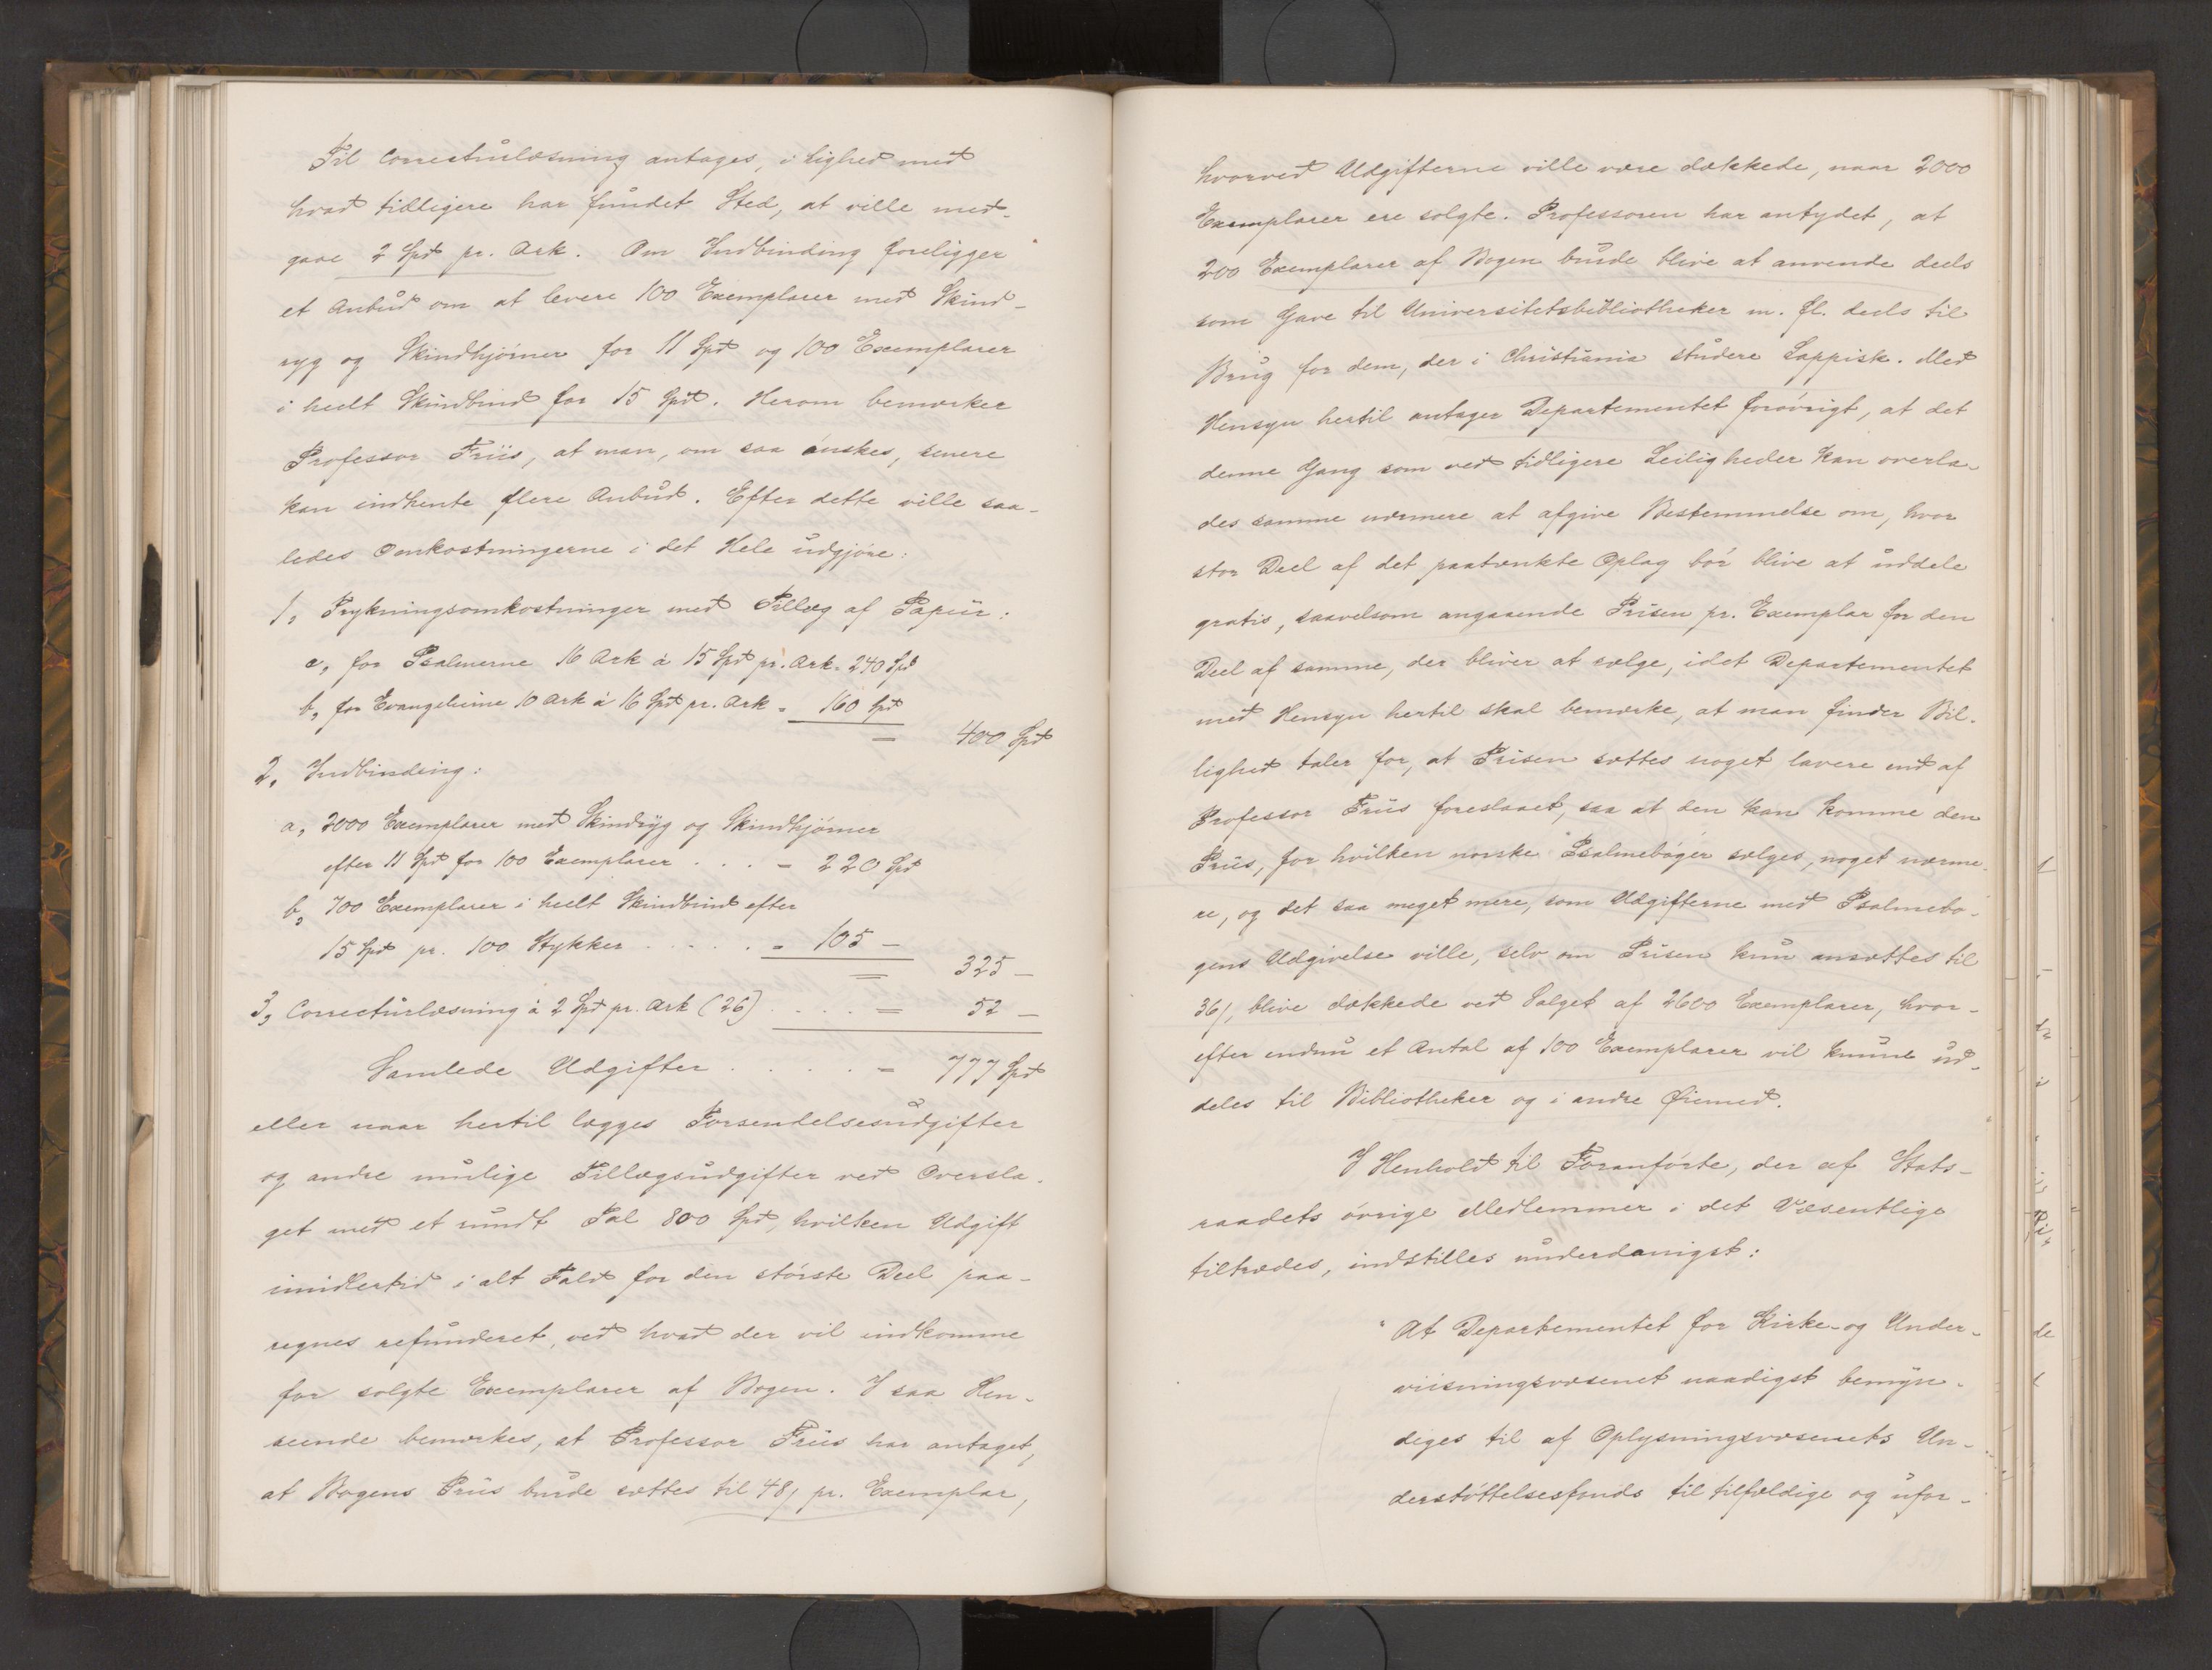 Til Correcturlæsning antages, i Lighed med
hvad tidligere har fundet Sted, at ville med-
gaae 2 Spd pr. Ark. Om Indbinding foreligger
et Anbud om at levere 100 Exemplarer med Skind-
ryg og Skindhjörner for 11 Spd og 100 Exemplarer
i heelt Skindbind for 15 Spd. Herom bemærker
Professor Friis, at man, om saa önskes, senere
kan indhente flere Anbud. Efter dette ville saa-
ledes Omkostningerne i det Hele udgjöre:
1, Trykningsomkostninger med Tillæg af Papiir:
a, for Psalmerne 16 Ark à 15 Spd pr. Ark = 240 Spd
b, for Evangelierne 10 Ark à 16 Spd pr. Ark = 160 Spd
= 400 Spd
2, Indbinding:
a, 2000 Exemplarer med Skindryg og Skindhjörner
efter 11 Spd for 100 Exemplarer . . . = 220 Spd
b, 700 Exemplarer i heelt Skindbind efter
15 Spd pr. 100 Stykker . . . . . = 105 —
= 325 —
3, Correcturlæsning à 2 Spd pr. Ark (26) . . . . = 52 —
Samlede Udgifter . . . . . = 777 Spd
eller naar hertil lægges Forsendelsesudgifter
og andre mulige Tillægsudgifter ved Oversla-
get med et rundt Tal 800 Spd, hvilken Udgift
imidlertid i alt Fald for den störste Deel paa-
regnes refunderet, ved hvad der vil indkomme
for solgte Exemplarer af Bogen. I saa Hen-
seende bemærkes, at Professor Friis har antaget,
at Bogens Priis burde sættes til 48/ pr. Exemplar,
hvorved Udgifterne ville være dækkede, naar 2000
Exemplarer ere solgte. Professoren har antydet, at
200 Exemplarer af Bogen burde blive at anvende deels
som Gave til Universitetsbibliotheker m. fl. deels til
Brug for dem, der i Christiania studere Lappisk. Med
Hensyn hertil antager Departementet forövrigt, at det
denne Gang som ved tidligere Leiligheder kan overla-
des samme nærmere at afgive Bestemmelse om, hvor
stor Deel af det paatænkte Oplag bör blive at uddele
gratis, saavelsom angaaende Prisen pr. Exemplar for den
Deel af samme, der bliver at sælge, idet Departementet
med Hensyn hertil skal bemærke, at man finder Bil-
lighed taler for, at Prisen sættes noget lavere end af
Professor Friis foreslaaet, saa at den kan komme den
Priis, for hvilken norske Psalmeböger sælges, noget nærme-
re, og det saa meget mere, som Udgifterne med Psalmebo-
gens Udgivelse ville, selv om Prisen kun ansættes til
36/, blive dækkede ved Salget af 2600 Exemplarer, hvor-
efter endnu et Antal af 100 Exemplarer vil kunne ud-
deles til Bibliotheker og i andre Øiemed.
I Henhold til Foranförte, der af Stats-
raadets övrige Medlemmer i det Væsentlige
tiltrædes, indstilles underdanigst:
"At Departementet for Kirke- og Under-
viisningsvæsenet naadigst bemyn-
diges til af Oplysningsvæsenets Un-
derstöttelsesfonds til tilfældige og ufor-